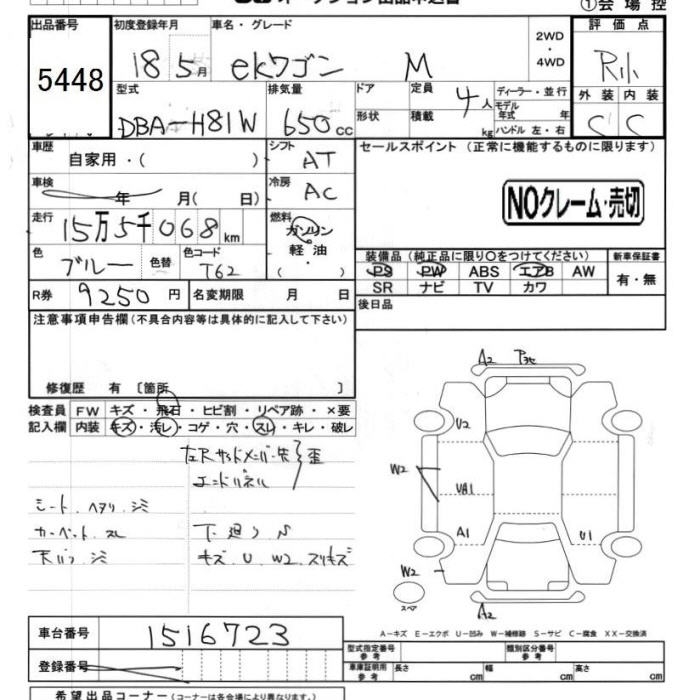 オークション出品申込書
①会場控
出品番号
5448
初度登録年月
18 5月
車名・グレード
ekワゴン M
2WD
・
4WD
評価点
外装 内装
C C
型式
DBA-H81W
排気量
650cc
ドア
形状
定員
4人
積載
kg
ディーラー・並行
モデル
年式 年
ハンドル 左・右
車歴
自家用・( )
シフト
AT
車検
年 月( 日)
冷房
AC
走行
15万5千068km
燃料
ガソリン
・
軽油
( )
色
ブルー
色替
色コード
T62
R券
9250円
名変期限 月 日
セールスポイント (正常に機能するものに限ります)
NOクレーム・売切
装備品 (純正品に限り○をつけてください)
PS PW ABS エアB AW
SR ナビ TV カワ
新車保証書
有・無
後日品
注意事項申告欄(不具合内容等は具体的に記入して下さい)
修復歴 有 〔箇所 〕
検査員
記入欄
FW キズ・飛石・ヒビ割・リペア跡・×要
内装 キズ・汚レ・コゲ・穴・スレ・キレ・破レ
左Rサイドメンバー先
エンドパネル
歪
シート、ヘタリ、シミ
カーペット、スレ
天バリ、シミ
下廻りS
キズ、U、W2、スリキズ
A2
U2
W2
UA1
A1
U1
W2
スペア
A2
A-キズ E-エクボ U-凹み W-補修跡 S-サビ C-腐食 XX-交換済
車台番号
1516723
登録番号
型式指定番号
参考
類別区分番号
参考
車庫証明用
参考
長さ cm 幅 cm 高さ cm
希望出品コーナー(コーナーは各会場により異なります。)